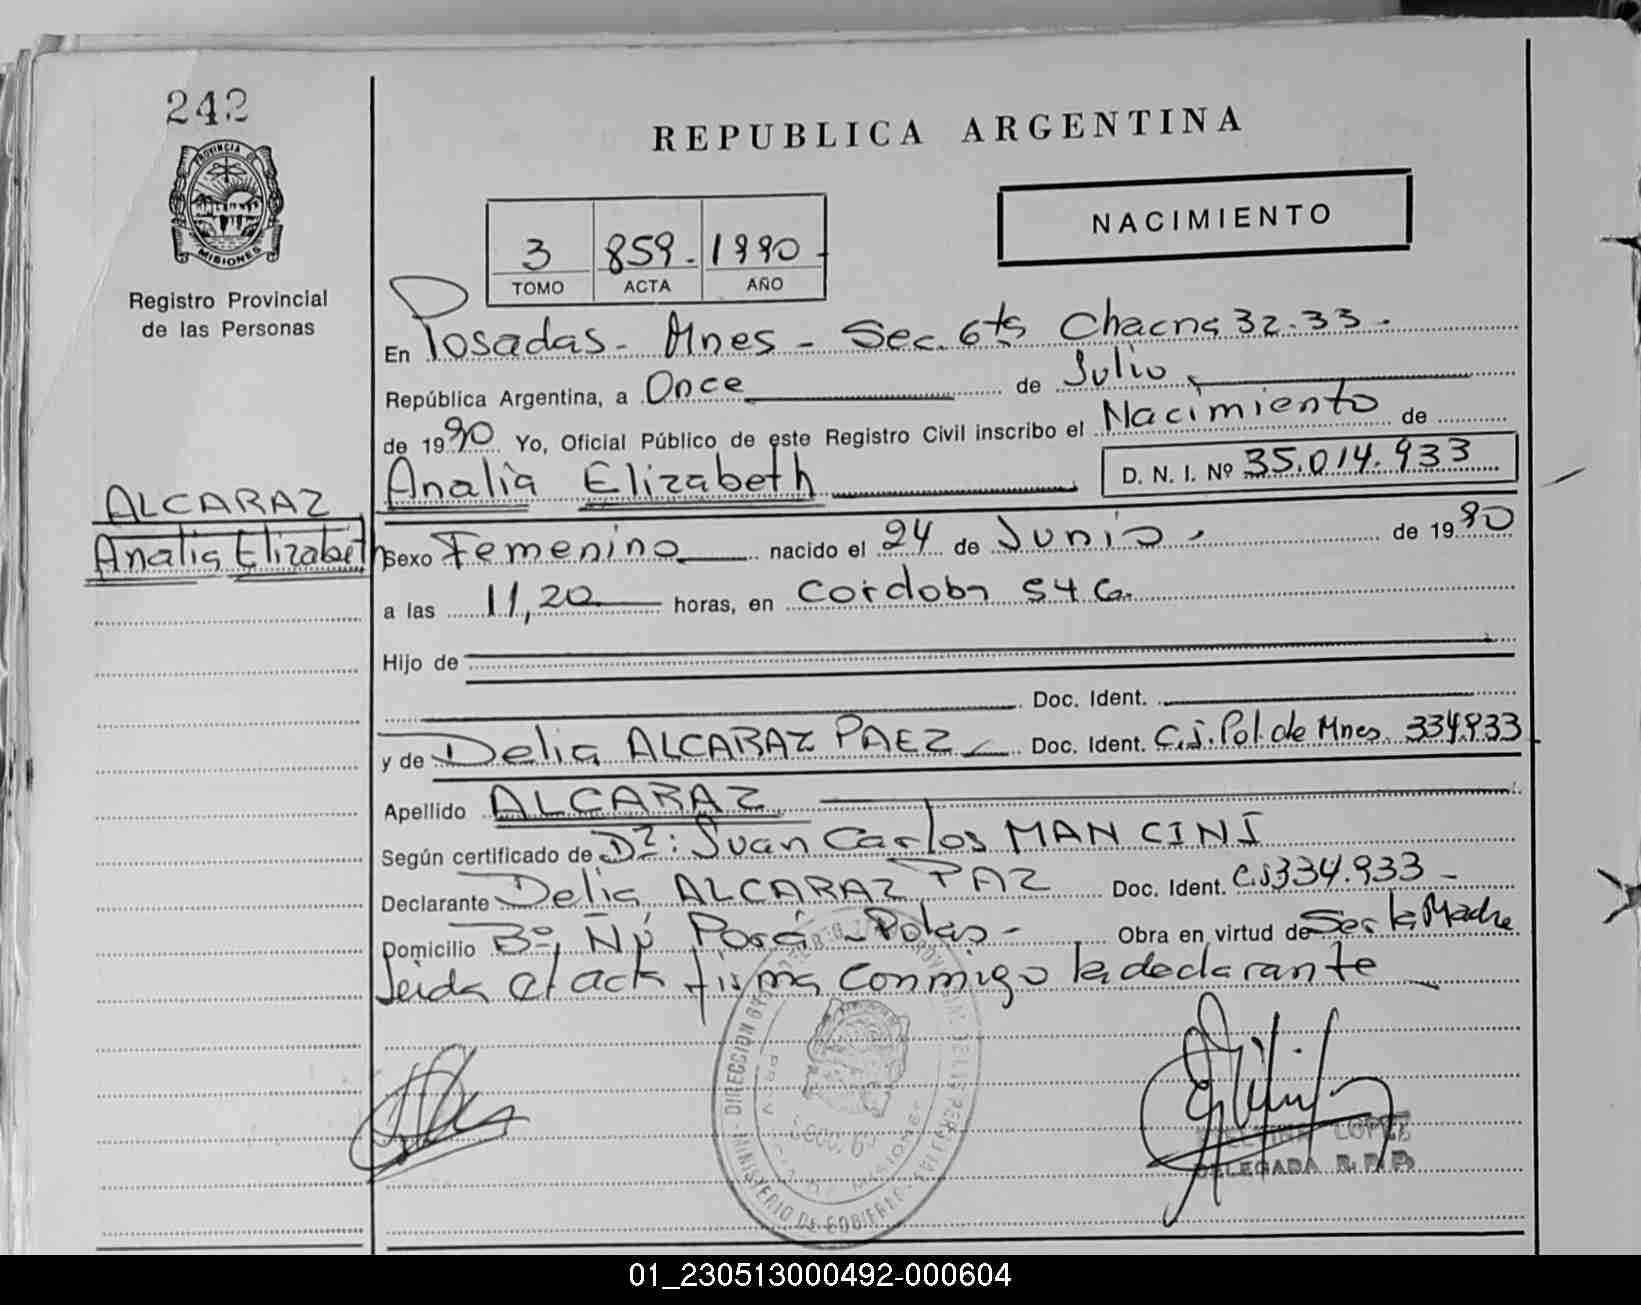 242
PROVINCIA DE
MISIONES
Registro Provincial
de las Personas
REPUBLICA ARGENTINA
NACIMIENTO
3 859. 1990
TOMO ACTA AÑO
En Posadas - Mnes - Sec. 6ta Chacra 32-33 -
República Argentina, a Once de Julio
de 1990 Yo, Oficial Público de este Registro Civil inscribo el Nacimiento de
Analia Elizabeth D. N. I. Nº 35.014.933
ALCARAZ
Analia Elizabeth
Sexo Femenino nacido el 24 de Junio de 1990
a las 11,20 horas, en Cordoba
Hijo de
Doc. Ident.
y de Delia ALCARAZ PAEZ Doc. Ident. C.I. Pol. de Mnes. 334.933
Apellido ALCARAZ
Según certificado de Dr: Juan Carlos MANCINI
Declarante Delia ALCARAZ PAZ Doc. Ident. C.I 334.933 -
Domicilio Bº Ñú Porá - Pdas - Obra en virtud de Ser la Madre
Leida el acta firma conmigo la declarante
MINISTERIO DE GOBIERNO
LOPEZ
DELEGADA R. P. P.
01_230513000492-000604